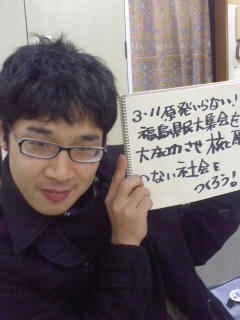 3・11原発いらない!
福島県民大集会を
大成功させ 核
のない社会を
つくろう!